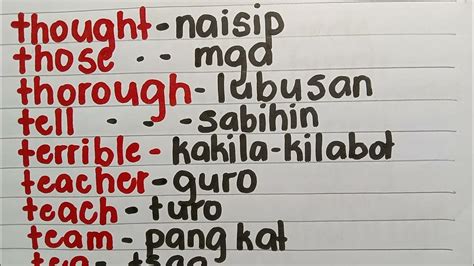 thought - naisip
those - - mga
thorough - lubusan
tell - - - sabihin
terrible - kakila-kilabot
teacher - guro
teach - turo
team - pangkat
tea - tsaa